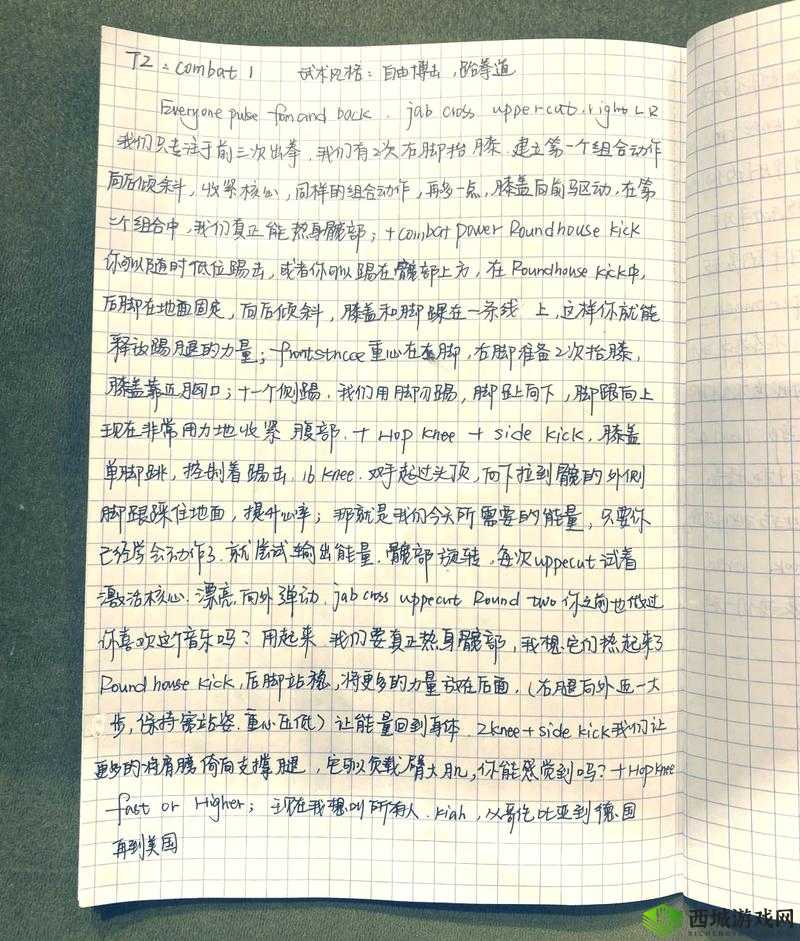 T2: combat 1 武术风格：自由搏击，跆拳道
Everyone pulse and back. jab cross uppercut. right L R
我们只专注于前三次出拳.我们有2次右脚抬膝.建立第一个组合动作
向后倾斜，收紧核心，同样的组合动作，再多一点，膝盖向前驱动，在第
二个组合中，我们真正能热身髋部；+combat power Roundhouse kick
你可以随时低位踢击，或者你可以踢在髋部上方，在Roundhouse kick中，
后脚在地面固定，向后倾斜，膝盖和脚踝在一条线上，这样你就能
释放踢腿的力量；重心在脚，右脚准备2次抬膝，
膝盖靠近胸口；+一个侧踢.我们用脚刃踢，脚趾向下，脚跟向上
现在非常用力地收紧腹部.+Hop knee + side kick，膝盖
单脚跳，控制着踢击.16 knee.双手起过头顶，向下拉到髋的外侧
脚跟踩住地面，提升心率；那就是我们今天所需要的能量，只要你
已经学会动作了.就尝试输出能量.髋部旋转，每次uppecut试着
激活核心.漂亮.向外弹动.jab cross uppecut Round two 你之前也做过
你喜欢这个音乐吗？用起来.我们要真正热身髋部，我想它们热起来了
Round house kick，后脚站稳，将更多的力量放在后面.（右腿向外迈一大
步，保持宽站姿.重心压低）让能量回到身体.2knee+side kick我们让
更多的将肩膀倚向支撑腿，它驱负载臀大肌，你能感觉到吗？+Hop knee
fast or Higher；现在我想叫所有人.kiah，从哥伦比亚到德国
再到美国
西城游戏网